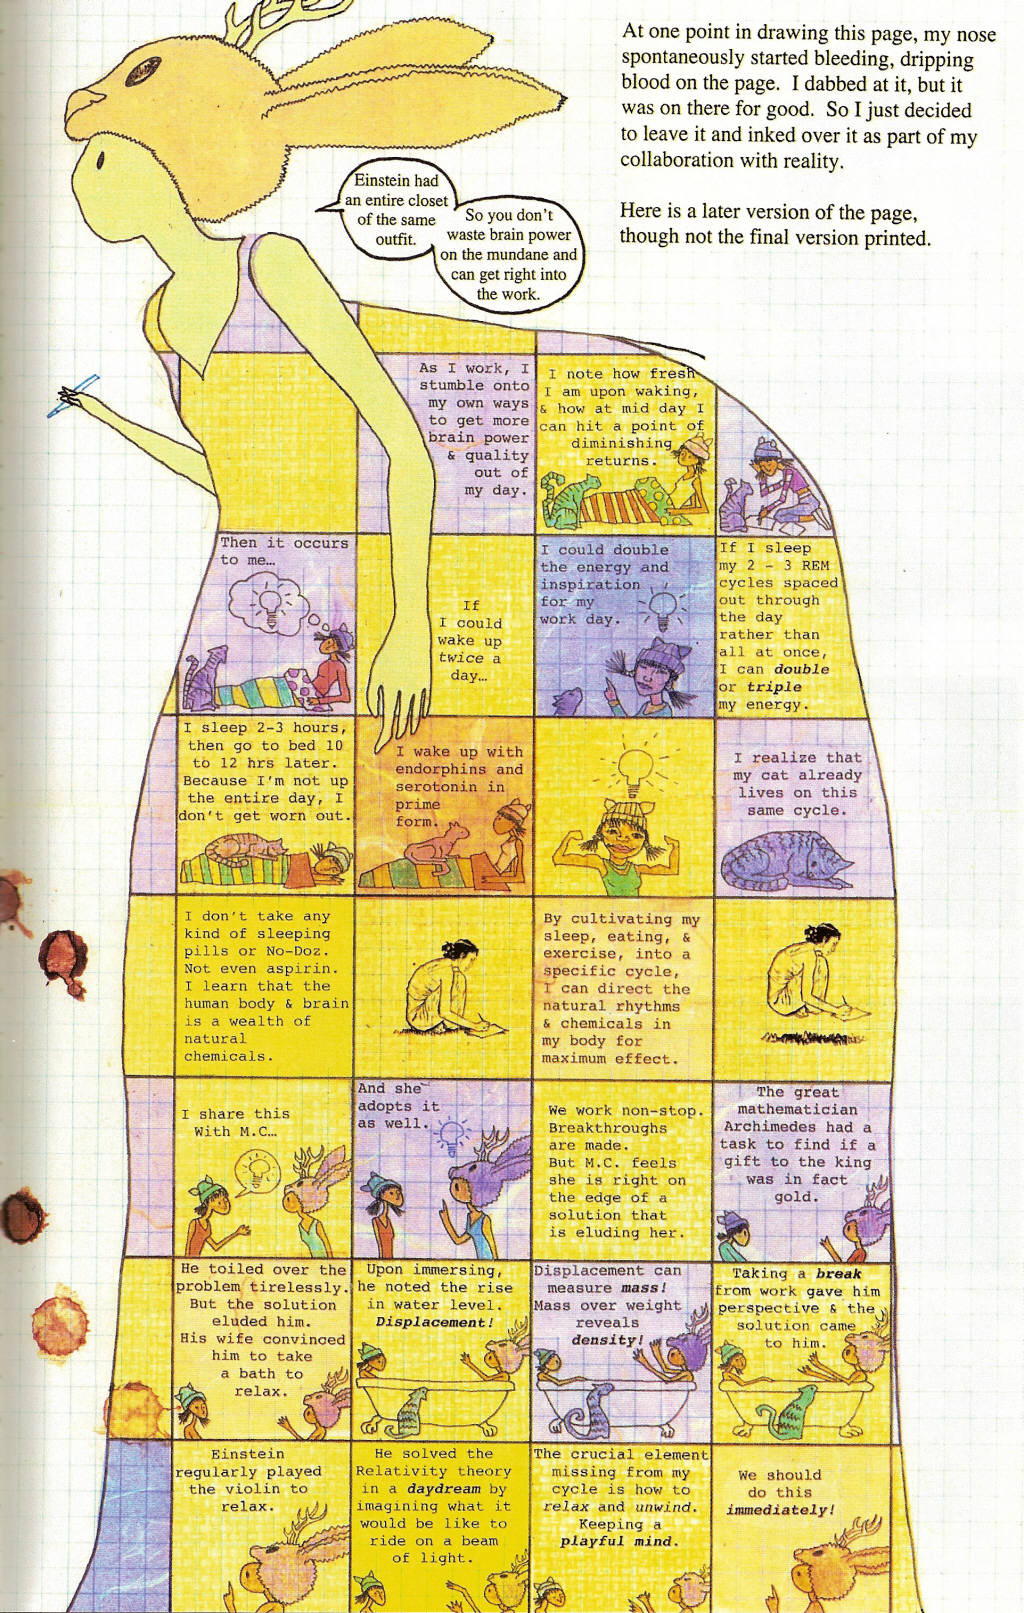 At one point in drawing this page, my nose
spontaneously started bleeding, dripping
blood on the page. I dabbed at it, but it
was on there for good. So I just decided
to leave it and inked over it as part of my
collaboration with reality.
Here is a later version of the page,
though not the final version printed.
Einstein had
an entire closet
of the same
outfit.
So you don't
waste brain power
on the mundane and
can get right into
the work.
As I work, I
stumble onto
my own ways
to get more
brain power
& quality
out of
my day.
I note how fresh
I am upon waking,
& how at mid day I
can hit a point of
diminishing
returns.
Then it occurs
to me...
If
I could
wake up
twice a
day...
I could double
the energy and
inspiration
for my
work day.
If I sleep
my 2 - 3 REM
cycles spaced
out through
the day
rather than
all at once,
I can double
or triple
my energy.
I sleep 2-3 hours,
then go to bed 10
to 12 hrs later.
Because I'm not up
the entire day, I
don't get worn out.
I wake up with
endorphins and
serotonin in
prime
form.
I realize that
my cat already
lives on this
same cycle.
I don't take any
kind of sleeping
pills or No-Doz.
Not even aspirin.
I learn that the
human body & brain
is a wealth of
natural
chemicals.
By cultivating my
sleep, eating, &
exercise, into a
specific cycle,
I can direct the
natural rhythms
& chemicals in
my body for
maximum effect.
I share this
With M.C...
And she
adopts it
as well.
We work non-stop.
Breakthroughs
are made.
But M.C. feels
she is right on
the edge of a
solution that
is eluding her.
The great
mathematician
Archimedes had a
task to find if a
gift to the king
was in fact
gold.
He toiled over the
problem tirelessly.
But the solution
eluded him.
His wife convinced
him to take
a bath to
relax.
Upon immersing,
he noted the rise
in water level.
Displacement!
Displacement can
measure mass!
Mass over weight
reveals
density!
Taking a break
from work gave him
perspective & the
solution came
to him.
Einstein
regularly played
the violin to
relax.
He solved the
Relativity theory
in a daydream by
imagining what it
would be like to
ride on a beam
of light.
The crucial element
missing from my
cycle is how to
relax and unwind.
Keeping a
playful mind.
We should
do this
immediately!